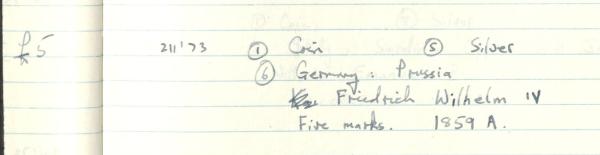 £5 211'73 ① Coin ⑤ Silver
⑥ Germany: Prussia
Friedrich Wilhelm IV
Five marks. 1859 A.